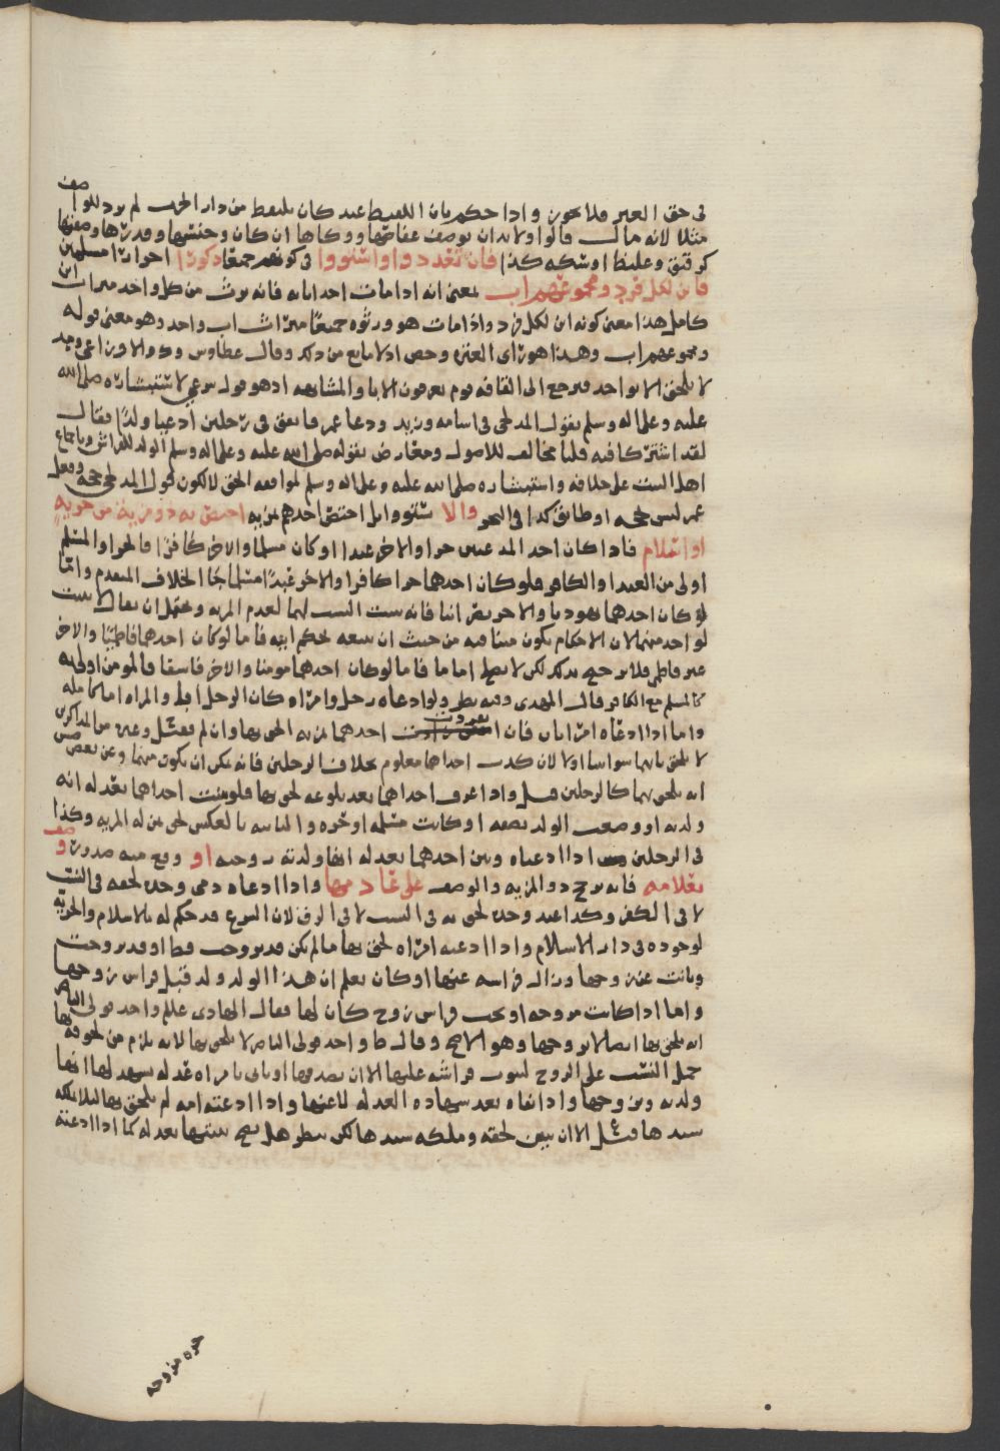 في حق الغير فلا يجوز واذا حكم بان اللقيط عبد كان يلتقط من دار الحرب لم يرد للواصف
مثلا لانه مال قالوا ولابد ان يوصف عفاصها ووكاها ان كان وجنسها وقدرها وصفتها
كرقيق وغليظ او شكه كذا فان تعددوا واستووا في كونهم جميعا ذكورا احرارا مسلمين
فابن لكل فرد ومجموعهم اب بمعنى انه اذا مات احد ابائه فانه يرث من كل واحد ميراث ابن
كامل هذا معنى كونه ابن لكل فرد واذا مات هو ورثوه جميعا ميراث اب واحد وهو معنى قوله
ومجموعهم اب وهذا هو راي العتره وحص اذ لا مانع من ذلك وقال عطا وس وك والاوزاعي وحمد
لا يلحق الا بواحد فيرجع الى القافه قوم يعرفون الابا والمشابهه اذ هو قول شرعي لاستبشاره صلى الله
عليه وعلى اله وسلم بقول المدلجي في اسامه وزيد ودعا عمر قايفتين في رجلين ادعيا ولدا فقال
لقد اشتركا فيه قلنا مخالف للاصول ومعارض بقوله صلى الله عليه وعلى اله وسلم الولد للفراش وباجماع
اهل البيت على خلافه واستبشاره صلى الله عليه وعلى اله وسلم لموافقه الحق لا لكون قول المدلجي حجه وفعل
عمر ليس بحجه او طابق كذا في البحر والا يستووا بل اختص احدهم بمزيه اختص به ذو مزيه من حريه
او اسلام فاذا كان احد المدعيين حرا والاخر عبدا او كان مسلما والاخر كافرا فالحر او المسلم
اولى من العبد او الكافر فلو كان احدهما حرا كافرا والاخر عبدا مسلما جا الخلاف المتقدم واما
لو كان احدهما يهوديا والاخر نصرانيا فانه يثبت النسب لهما لعدم المزيه ويحتمل ان يقال لا يثبت
لو احد منهما لان الاحكام تكون متنافيه من حيث ان يتبعه بحكم ابيه فاما لو كان احدهما فاطميا والاخر
غير فاطمي فلا ترجيح بذلك لكن لا يصلح اماما فاما لو كان احدهما مومنا والاخر فاسقا فالمومن اولى به
كالمسلم مع الكافر قال المهدي وفيه نظر ولو ادعاه رجل وامراه كان الرجل ابا والمراه اما كامله
واما اذا ادعاه امراتان فان انفردت احدهما بمزيه الحق بها وان لم فعند وغيره من المذاكرين
لا يلحق بايهما سوا سا اولا لان كذب احداهما معلوم بخلاف الرجلين فانه يمكن ان يكون منهما وعن بعض
انه يلحق بهما كالرجلين قيل واذا اعترف احداهما بعد بلوغه لحق بها فلو بينت احداهما بعدله انه
ولدته او وصفت الولد بصفه او كانت مسلمه او حره والثانيه بالعكس لحق بمن له المزيه وكذا
في الرجلين اذا ادعياه وبين احدهما بعدله انها ولدته زوجته او وقع منه صدور وصف
بعلامه فانه يرجح ذو المزيه والوصف على عادمها واذا ادعاه ذمي وحده لحقه في النسب
لا في الكفر وكذا عبد وحده لحق به في النسب لا في الرق لان الشرع قد حكم له بالاسلام والحريه
لوجوده في دار الاسلام واذا ادعته امراه لحق بها مالم يكن قد تزوجت قط او قد تزوجت
وبانت عن زوجها وزال فراشه عنها او كان يعلم ان هذا الولد ولد قبل فراش زوجها
واما اذا كانت مزوجه او تحت فراش زوج كان لها فقال الهادي علم واحد قولي الناصر
انه يلحق بها ايضا لا بزوجها وهو الاصح وقال ط واحد قولي الناصر لا يلحق بها لانه يلزم من لحوقه بها
حمل النسب على الزوج لثبوت فراشه عليها الا ان يصدقها او ياتي بامراه عدله تشهد لها انها
ولدته من زوجها واذا نفاه بعد شهاده العدله لاعنها واذا ادعته امه لم يلحق بها لئلا يملكه
سيدها قيل الا ان تبين لحقه وملكه سيدها لكن ينظر هل تصح بينتها بعدله كما اذا ادعته
حره مزوجه